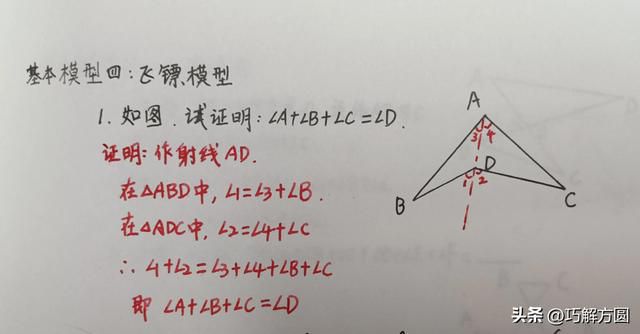 基本模型四:飞镖模型
1. 如图.试证明:∠A+∠B+∠C=∠D.
证明:作射线AD.
在△ABD中,∠1=∠3+∠B.
在△ADC中,∠2=∠4+∠C
∴ ∠1+∠2=∠3+∠4+∠B+∠C
即 ∠A+∠B+∠C=∠D
A
3 4
D
1 2
B
C
头条 @巧解方圆